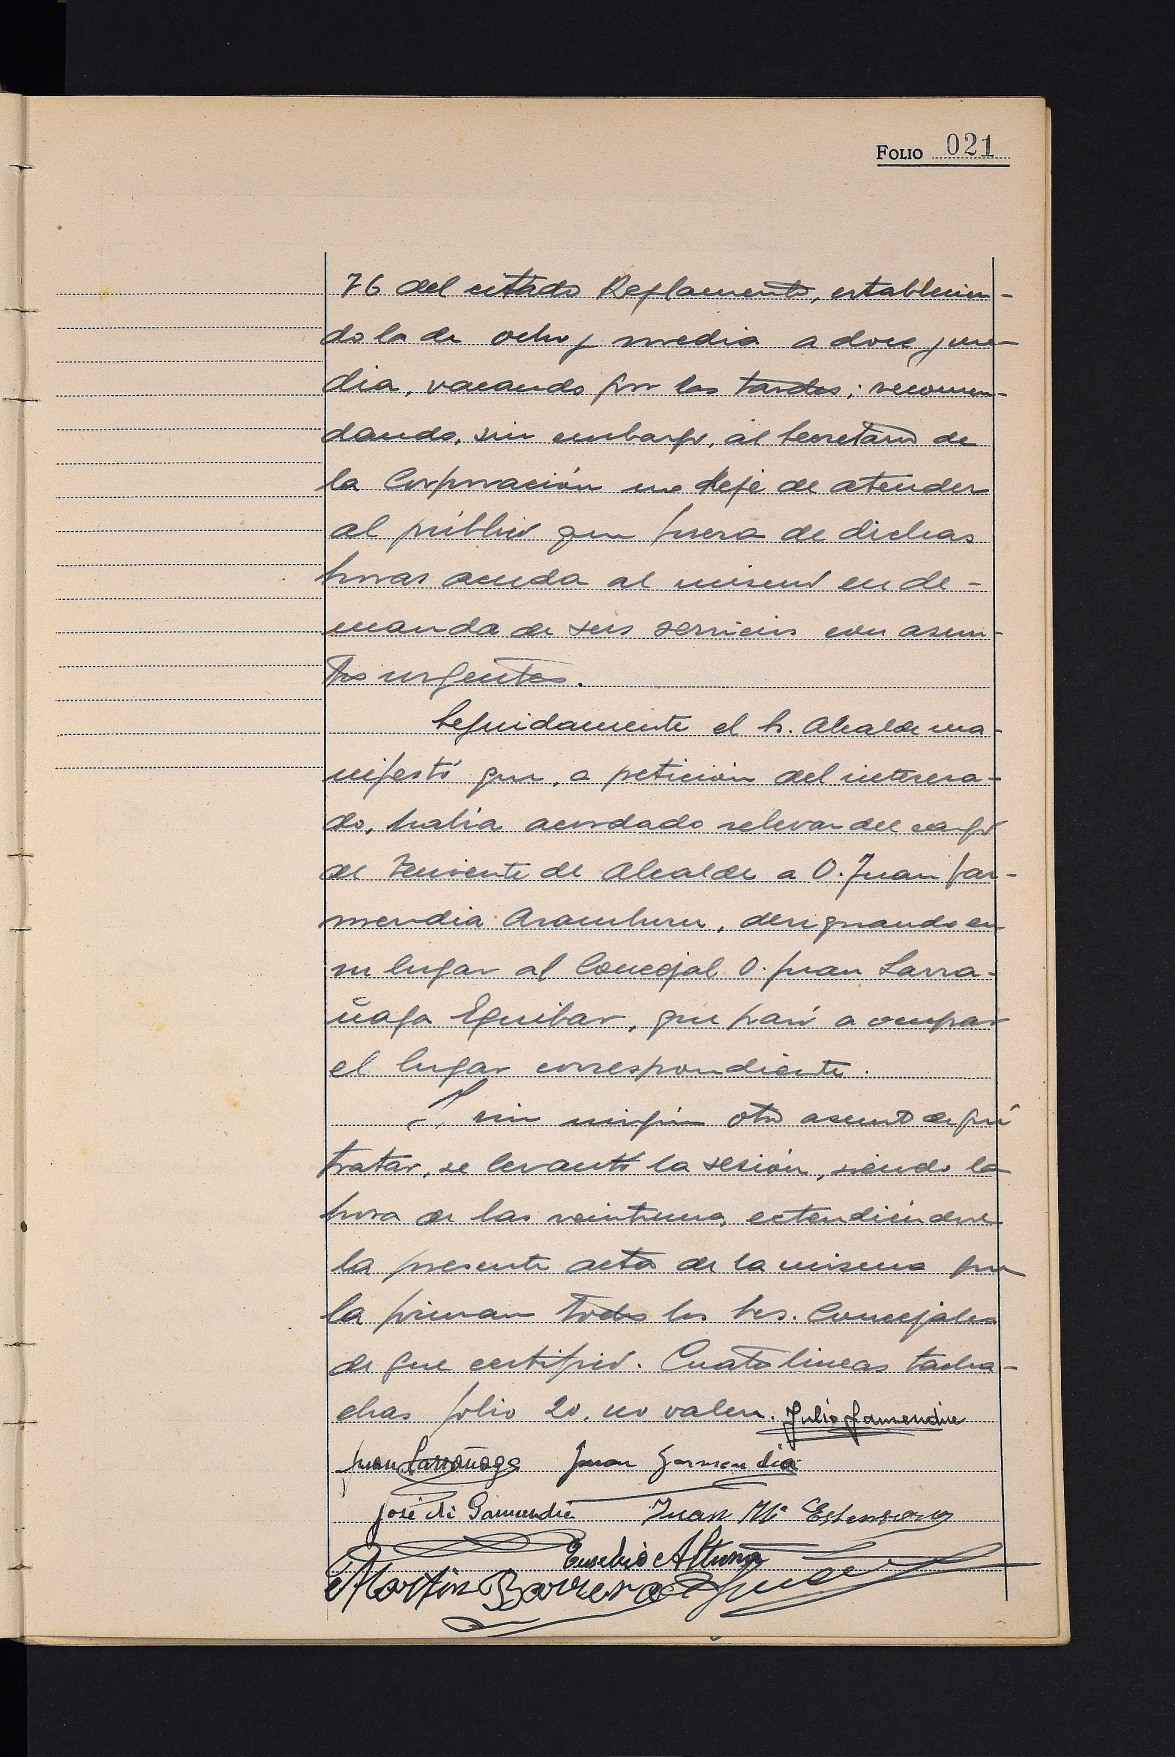 FOLIO 021
76 del citado Reglamento, establecien-
dola de ocho y media a doce y me-
dia, vacando por las tardes; recomen-
dando, sin embargo, al Secretario de
la Corporación no deje de atender
al público que fuera de dichas
horas acuda al mismo en de-
manda de sus servicios con asun-
tos urgentes.
Seguidamente el Sr. Alcalde ma-
nifestó que, a petición del interesa-
do, había acordado relevar del cargo
de Teniente de Alcalde a D. Juan Gar-
mendia Aramburu, designando en
su lugar al Concejal D. Juan Larra-
ñaga Eguibar, que pasó a ocupar
el lugar correspondiente.
Y, sin ningún otro asunto de qué
tratar, se levantó la sesión, siendo la
hora de las veintiuna, extendiéndose
la presente acta de la misma que
la firman todos los Sres. Concejales
de que certifico. Cuatro lineas tacha-
das folio 20, no valen. Julio Gamendie
Juan Larrañaga Juan Garmendia
José Mª Gamendie Juan Mª
Eusebio Altuna
Martin Barrena